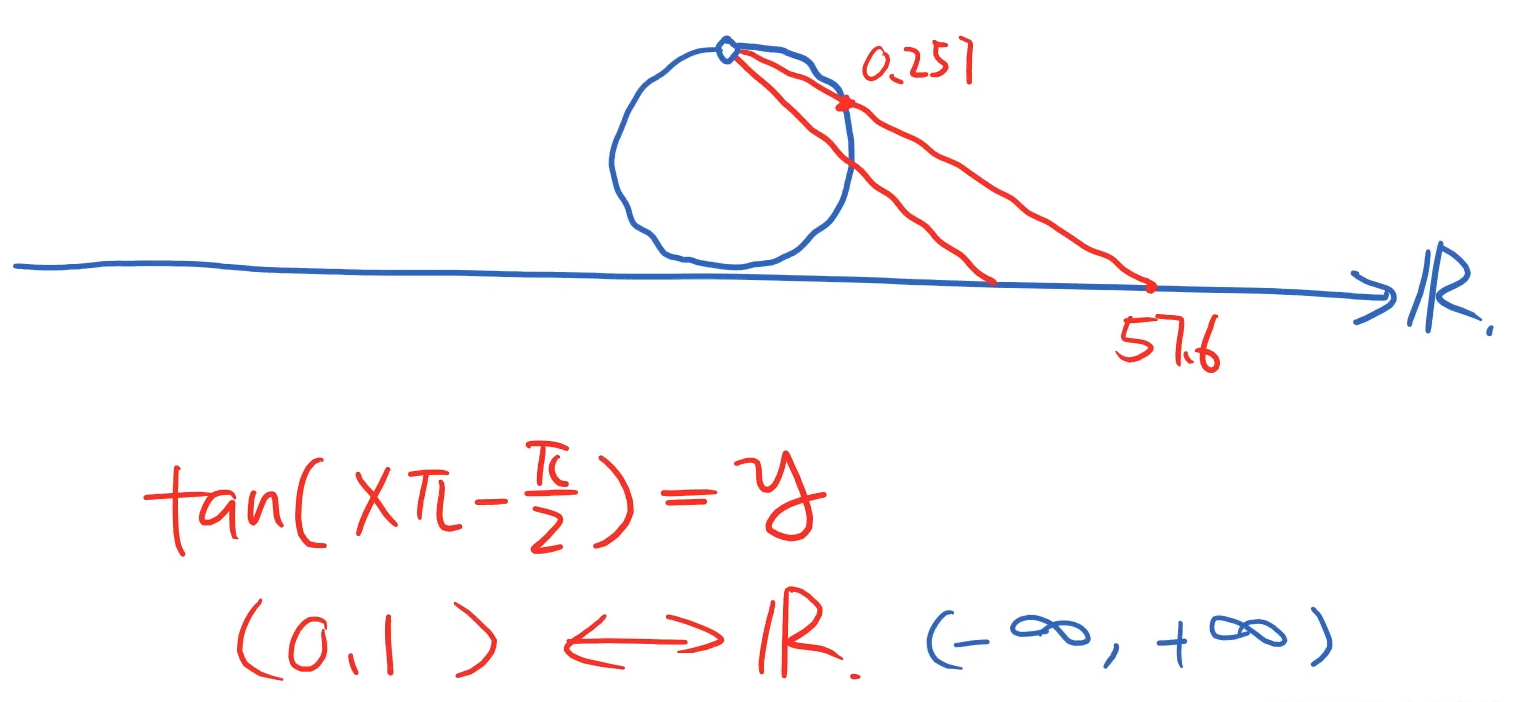 0.257
ℝ.
57.6
tan(xπ-π/2)=y
(0,1) ↔ ℝ. (-∞, +∞)